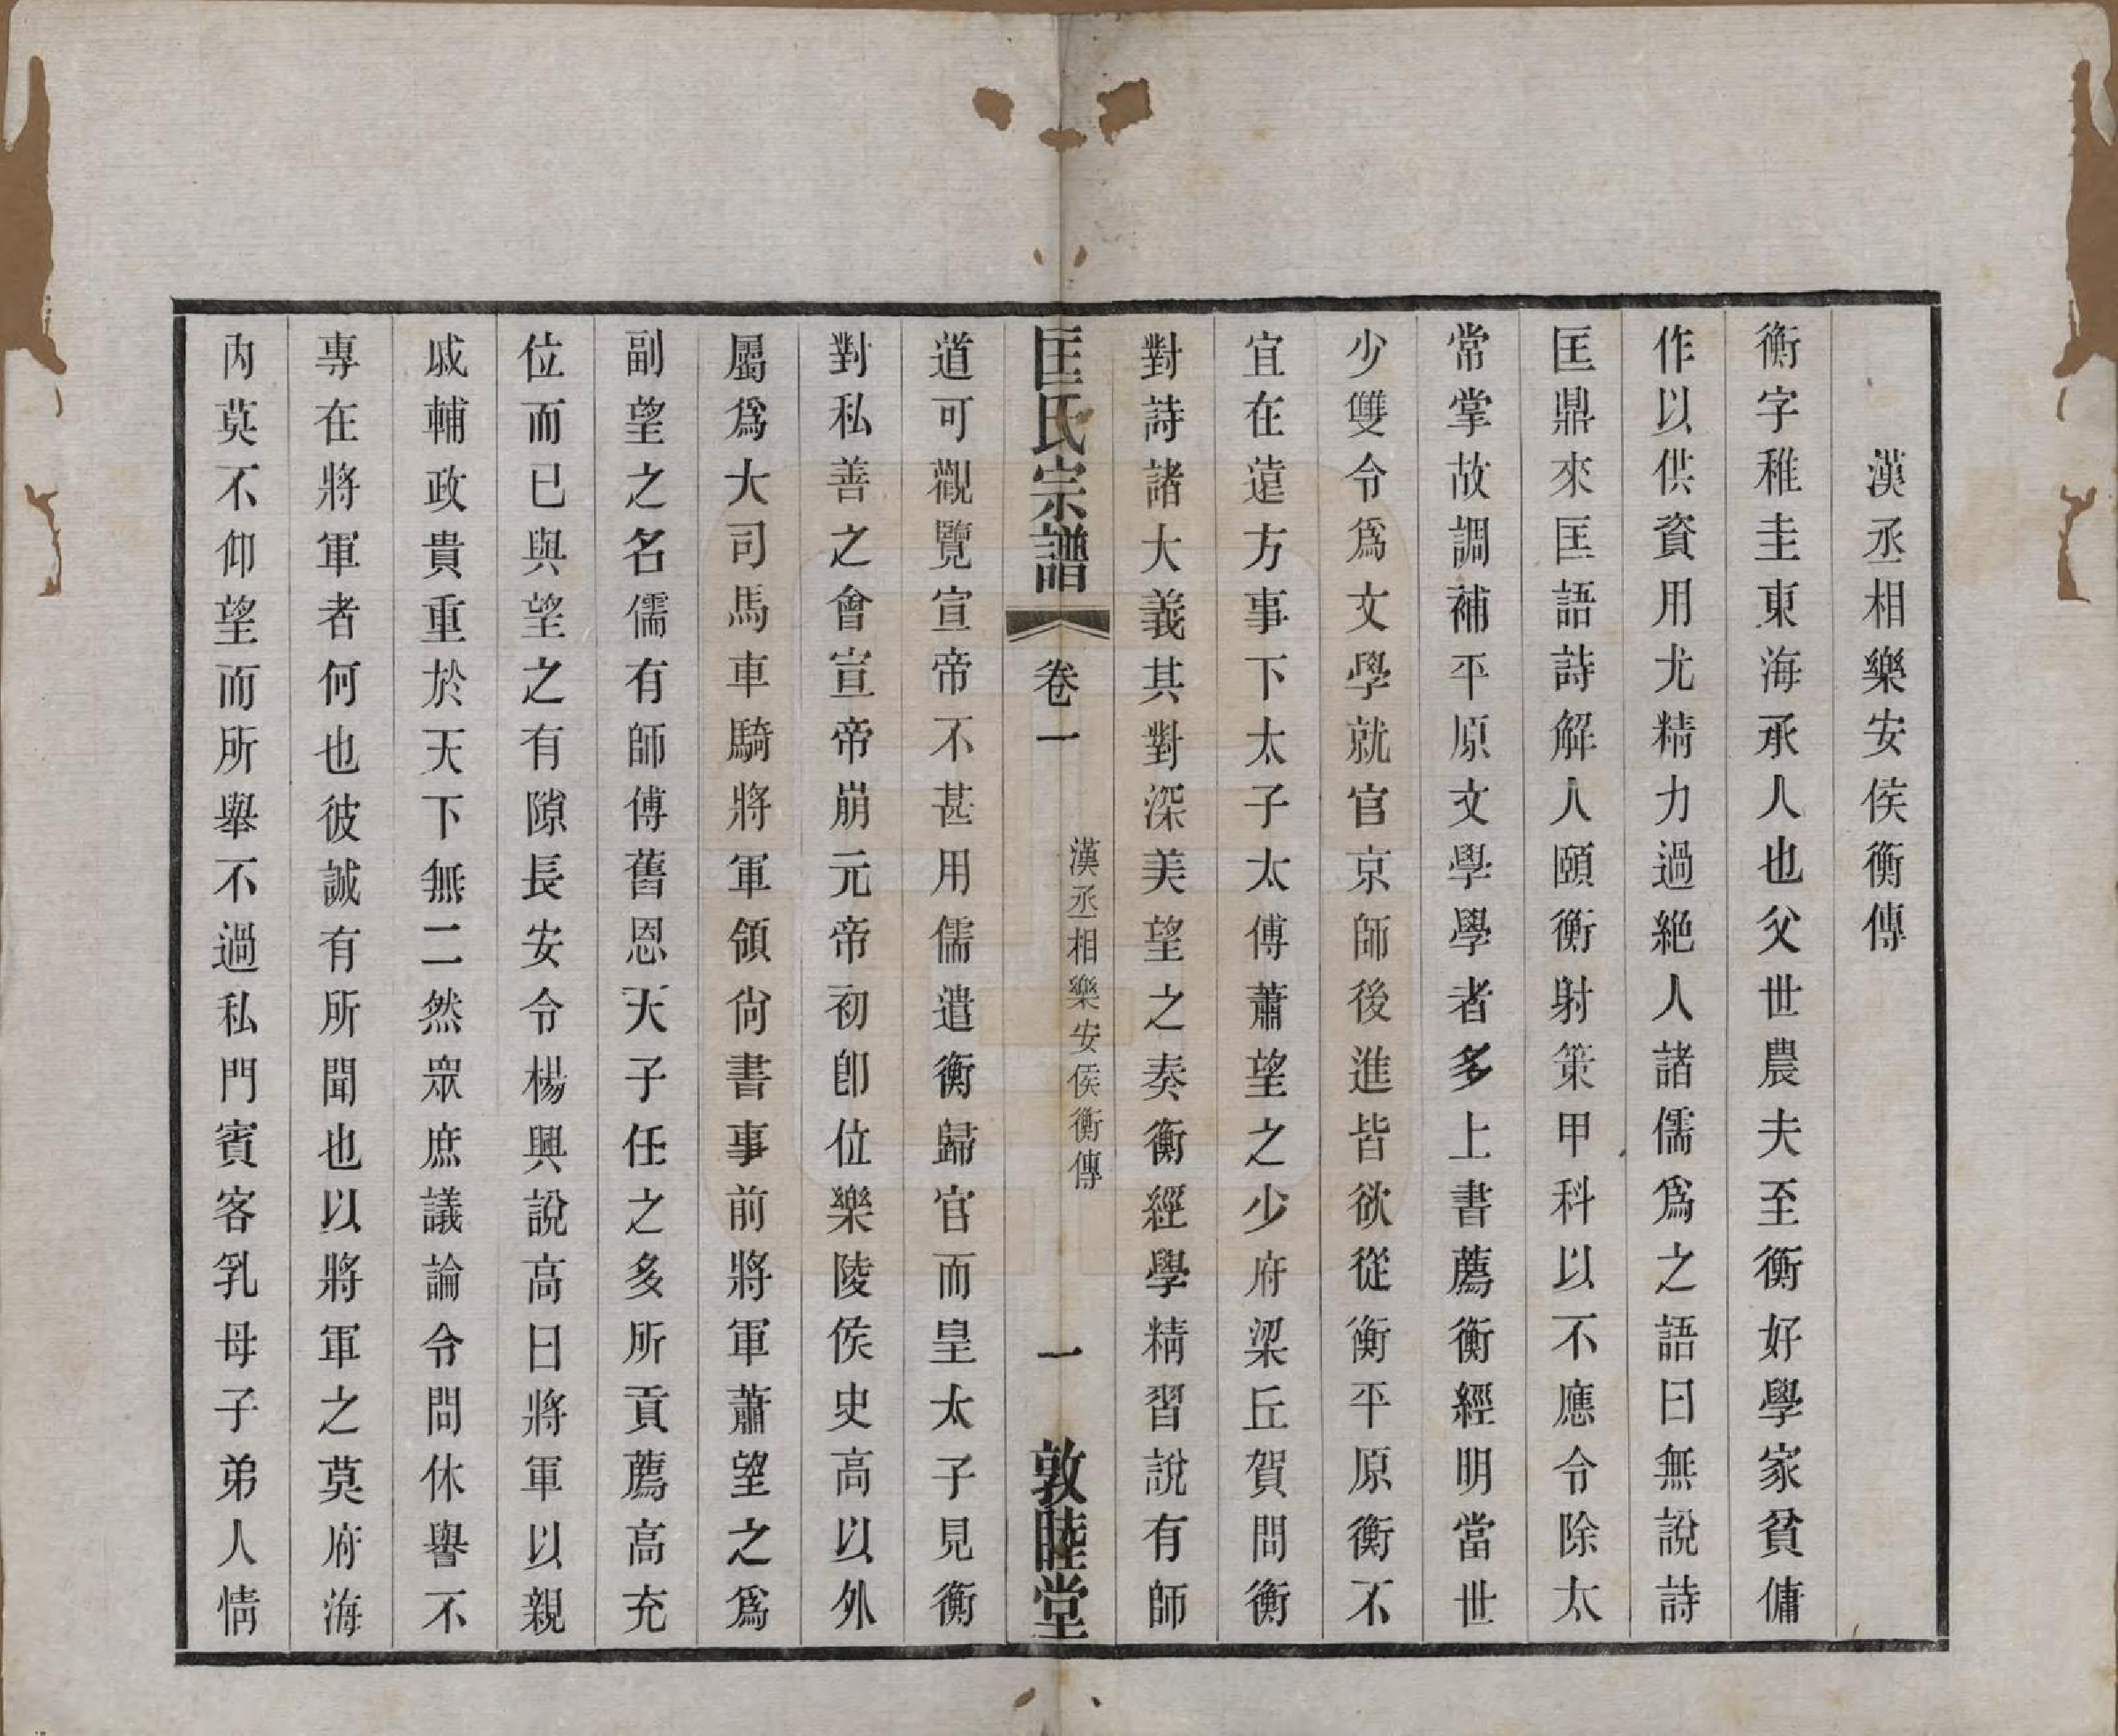 漢丞相樂安侯衡傳
衡字稚圭東海承人也父世農夫至衡好學家貧傭
作以供資用尤精力過絶人諸儒爲之語曰無說詩
匡鼎來匡語詩解人頤衡射策甲科以不應令除太
常掌故調補平原文學學者多上書薦衡經明當世
少雙令爲文學就官京師後進皆欲從衡平原衡不
宜在遠方事下太子太傅蕭望之少府梁丘賀問衡
對詩諸大義其對深美望之奏衡經學精習說有師
匡氏宗譜
卷一
漢丞相樂安侯衡傳
一
敦睦堂
道可觀覽宣帝不甚用儒遣衡歸官而皇太子見衡
對私善之會宣帝崩元帝初卽位樂陵侯史高以外
屬爲大司馬車騎將軍領尙書事前將軍蕭望之爲
副望之名儒有師傅舊恩天子任之多所貢薦高充
位而已與望之有隙長安令楊興說高曰將軍以親
戚輔政貴重於天下無二然眾庶議論令問休譽不
專在將軍者何也彼誠有所聞也以將軍之莫府海
內莫不仰望而所舉不過私門賓客乳母子弟人情